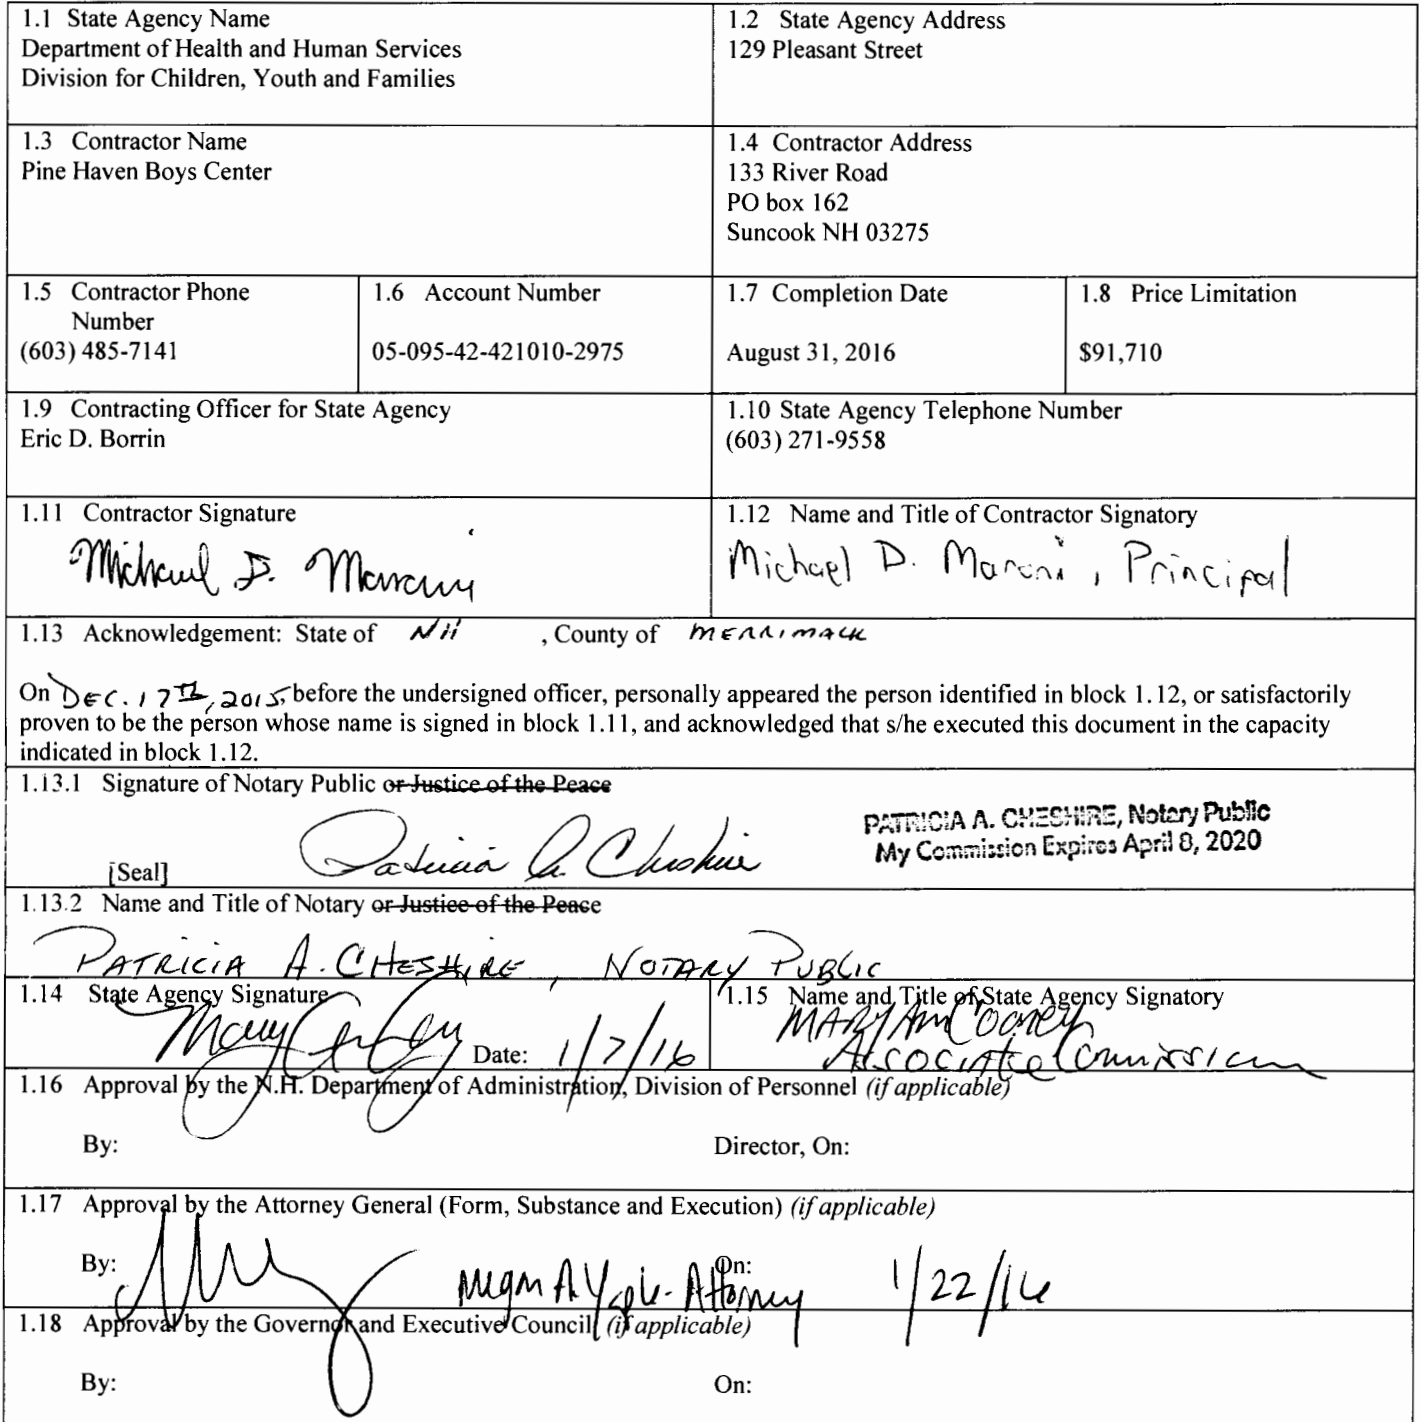 1.1 State Agency Name
Department of Health and Human Services
Division for Children, Youth and Families
1.2 State Agency Address
129 Pleasant Street
1.3 Contractor Name
Pine Haven Boys Center
1.4 Contractor Address
133 River Road
PO box 162
Suncook NH 03275
1.5 Contractor Phone
Number
(603) 485-7141
1.6 Account Number
05-095-42-421010-2975
1.7 Completion Date
August 31, 2016
1.8 Price Limitation
$91,710
1.9 Contracting Officer for State Agency
Eric D. Borrin
1.10 State Agency Telephone Number
(603) 271-9558
1.11 Contractor Signature
Michael D.
1.12 Name and Title of Contractor Signatory
Michael D. Maroni, Principal
1.13 Acknowledgement: State of NH , County of MERRIMACK
On DEC. 17TH, 2015, before the undersigned officer, personally appeared the person identified in block 1.12, or satisfactorily
proven to be the person whose name is signed in block 1.11, and acknowledged that s/he executed this document in the capacity
indicated in block 1.12.
1.13.1 Signature of Notary Public or Justice of the Peace
PATRICIA A. CHESHIRE, Notary Public
My Commission Expires April 8, 2020
Patricia A. Cheshire
[Seal]
1.13.2 Name and Title of Notary or Justice of the Peace
PATRICIA A. CHESHIRE, NOTARY PUBLIC
1.14 State Agency Signature
Date: 1/7/16
1.15 Name and Title of State Agency Signatory
MARY Ann COONEY
ASSOCIATE
1.16 Approval by the N.H. Department of Administration, Division of Personnel (if applicable)
By: Director, On:
1.17 Approval by the Attorney General (Form, Substance and Execution) (if applicable)
By: Megan A. - Attorney On: 1/22/16
1.18 Approval by the Governor and Executive Council (if applicable)
By: On: